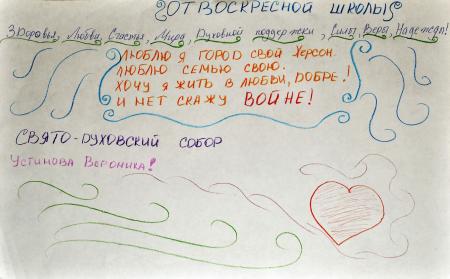 ОТ ВОСКРЕСНОЙ ШКОЛЫ
Здоровья, Любви, Счастья, Мира, Духовной поддержки, Силы, Веры, Надежды!
ЛЮБЛЮ Я ГОРОД СВОЙ ХЕРСОН.
ЛЮБЛЮ СЕМЬЮ СВОЮ.
ХОЧУ Я ЖИТЬ В ЛЮБВИ, ДОБРЕ.!
И НЕТ СКАЖУ ВОЙНЕ!
СВЯТО-ДУХОВСКИЙ СОБОР
УСТИНОВА ВЕРОНИКА!